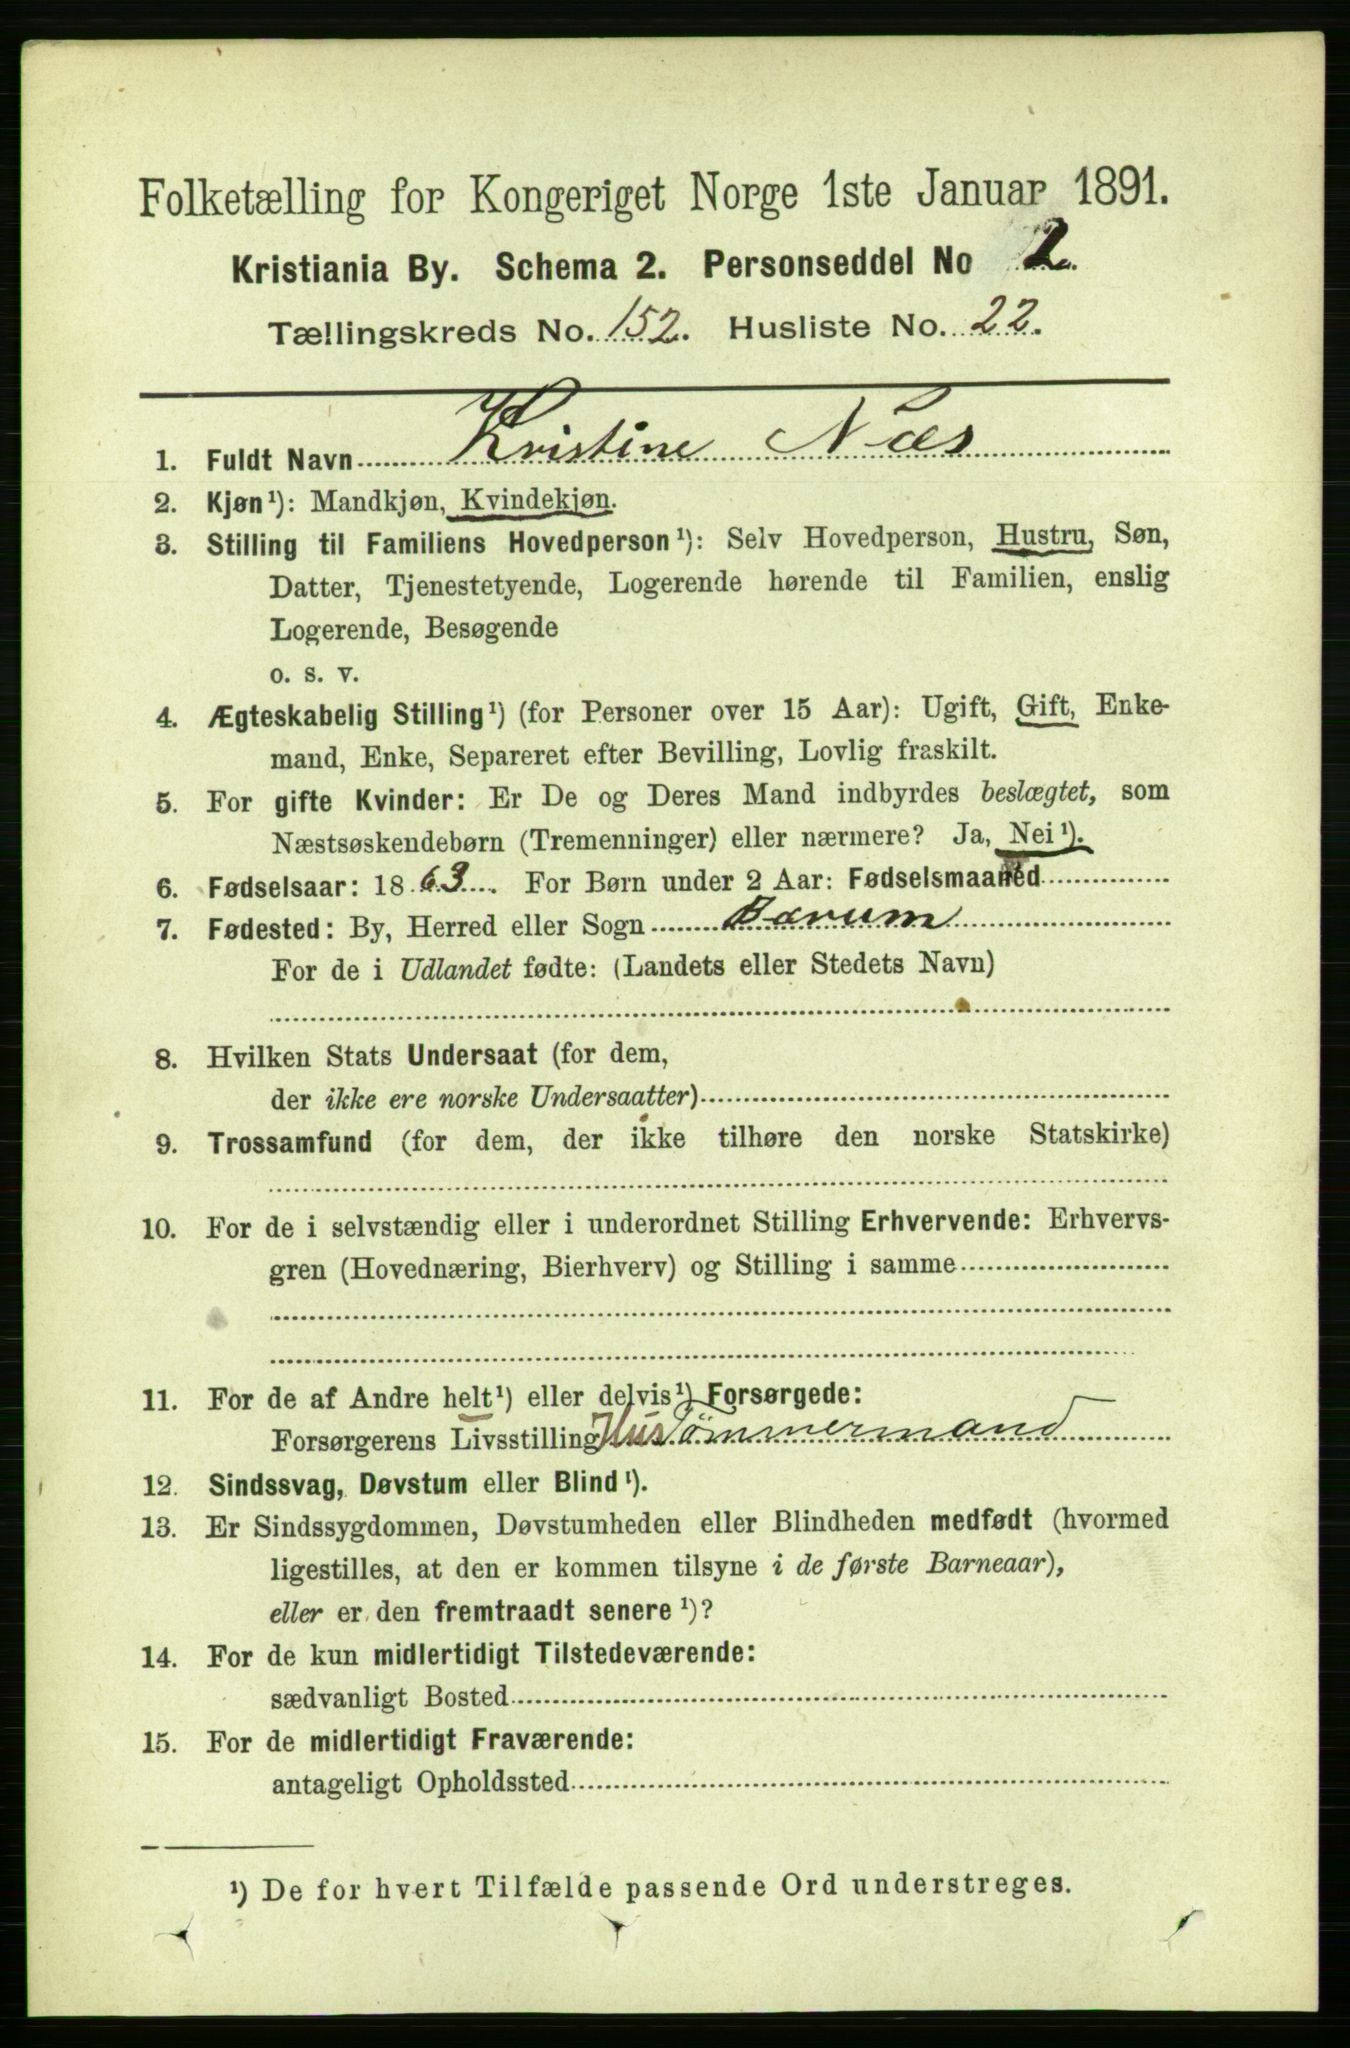 Folketælling for Kongeriget Norge 1ste Januar 1891.
Kristiania By. Schema 2. Personseddel No 2
Tællingskreds No. 152. Husliste No. 22.
1. Fuldt Navn Kristine Næs
2. Kjøn¹): Mandkjøn, Kvindekjøn.
3. Stilling til Familiens Hovedperson¹): Selv Hovedperson, Hustru, Søn,
Datter, Tjenestetyende, Logerende hørende til Familien, enslig
Logerende, Besøgende
o. s. v.
4. Ægteskabelig Stilling¹) (for Personer over 15 Aar): Ugift, Gift, Enke-
mand, Enke, Separeret efter Bevilling, Lovlig fraskilt.
5. For gifte Kvinder: Er De og Deres Mand indbyrdes beslægtet, som
Næstsøskendebørn (Tremenninger) eller nærmere? Ja, Nei¹).
6. Fødselsaar: 1863. For Børn under 2 Aar: Fødselsmaaned
7. Fødested: By, Herred eller Sogn Bærum
For de i Udlandet fødte: (Landets eller Stedets Navn)
8. Hvilken Stats Undersaat (for dem,
der ikke ere norske Undersaatter)
9. Trossamfund (for dem, der ikke tilhøre den norske Statskirke)
10. For de i selvstændig eller i underordnet Stilling Erhvervende: Erhvervs-
gren (Hovednæring, Bierhverv) og Stilling i samme
11. For de af Andre helt¹) eller delvis¹) Forsørgede:
Forsørgerens Livsstilling Hus Tømmermand
12. Sindssvag, Døvstum eller Blind¹).
13. Er Sindssygdommen, Døvstumheden eller Blindheden medfødt (hvormed
ligestilles, at den er kommen tilsyne i de første Barneaar),
eller er den fremtraadt senere¹)?
14. For de kun midlertidigt Tilstedeværende:
sædvanligt Bosted
15. For de midlertidigt Fraværende:
antageligt Opholdssted
¹) De for hvert Tilfælde passende Ord understreges.